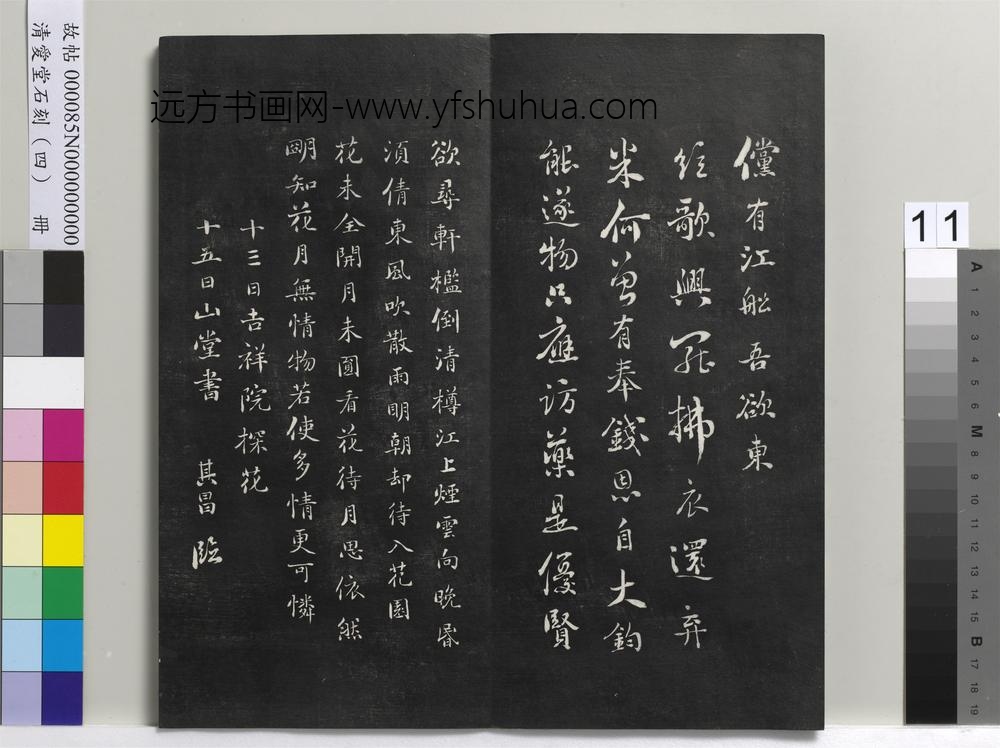 故帖 000085N000000000
清愛堂石刻（四） 冊
远方书画网-www.yfshuhua.com
11
儻有江船吾欲東
短歌興罷拂衣還弃
米何曾有奉錢恩自大鈞
能遂物只應訪藥是優賢
欲尋軒檻倒清樽江上煙雲向晚昏
須倩東風吹散雨明朝却待入花園
花未全開月未圓看花待月思依然
明知花月無情物若使多情更可憐
十三日吉祥院探花
十五日山堂書 其昌臨
A
1
2
3
4
5
6
M
8
9
10
11
12
13
14
15
B
17
18
19